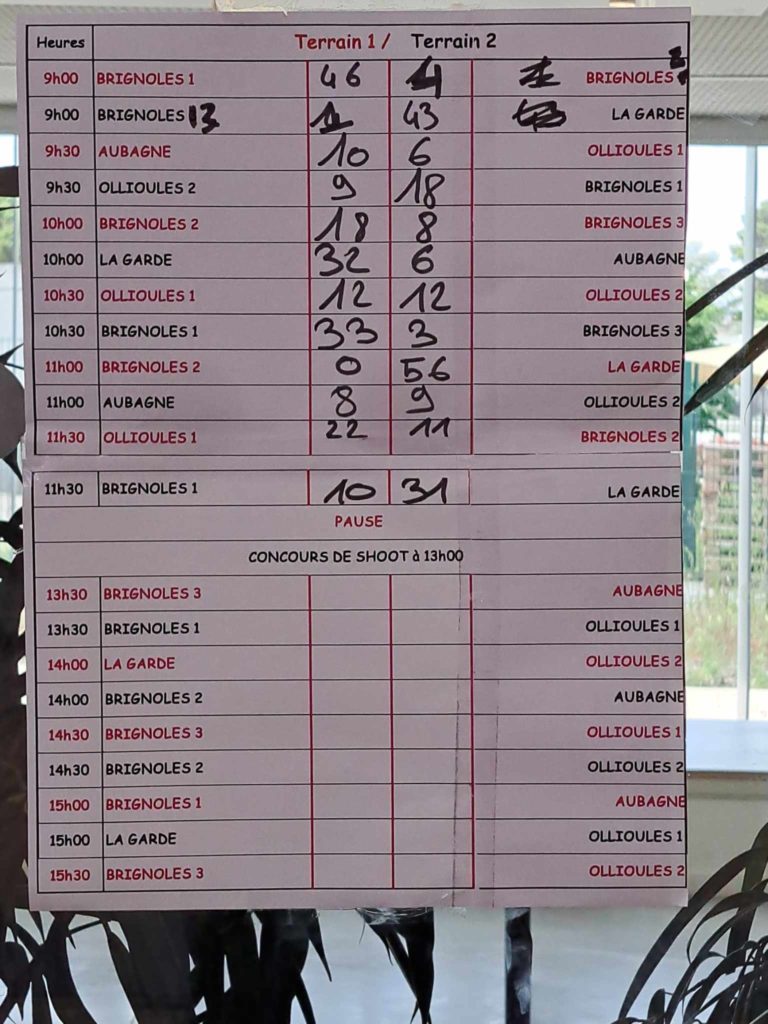 Heures Terrain 1 / Terrain 2
9h00 BRIGNOLES 1 46 4 BRIGNOLES 2
9h00 BRIGNOLES 3 1 43 LA GARDE
9h30 AUBAGNE 10 6 OLLIOULES 1
9h30 OLLIOULES 2 9 18 BRIGNOLES 1
10h00 BRIGNOLES 2 18 8 BRIGNOLES 3
10h00 LA GARDE 32 6 AUBAGNE
10h30 OLLIOULES 1 12 12 OLLIOULES 2
10h30 BRIGNOLES 1 33 3 BRIGNOLES 3
11h00 BRIGNOLES 2 0 56 LA GARDE
11h00 AUBAGNE 8 9 OLLIOULES 2
11h30 OLLIOULES 1 22 11 BRIGNOLES 2
11h30 BRIGNOLES 1 10 31 LA GARDE
PAUSE
CONCOURS DE SHOOT à 13h00
13h30 BRIGNOLES 3 AUBAGNE
13h30 BRIGNOLES 1 OLLIOULES 1
14h00 LA GARDE OLLIOULES 2
14h00 BRIGNOLES 2 AUBAGNE
14h30 BRIGNOLES 3 OLLIOULES 1
14h30 BRIGNOLES 2 OLLIOULES 2
15h00 BRIGNOLES 1 AUBAGNE
15h00 LA GARDE OLLIOULES 1
15h30 BRIGNOLES 3 OLLIOULES 2